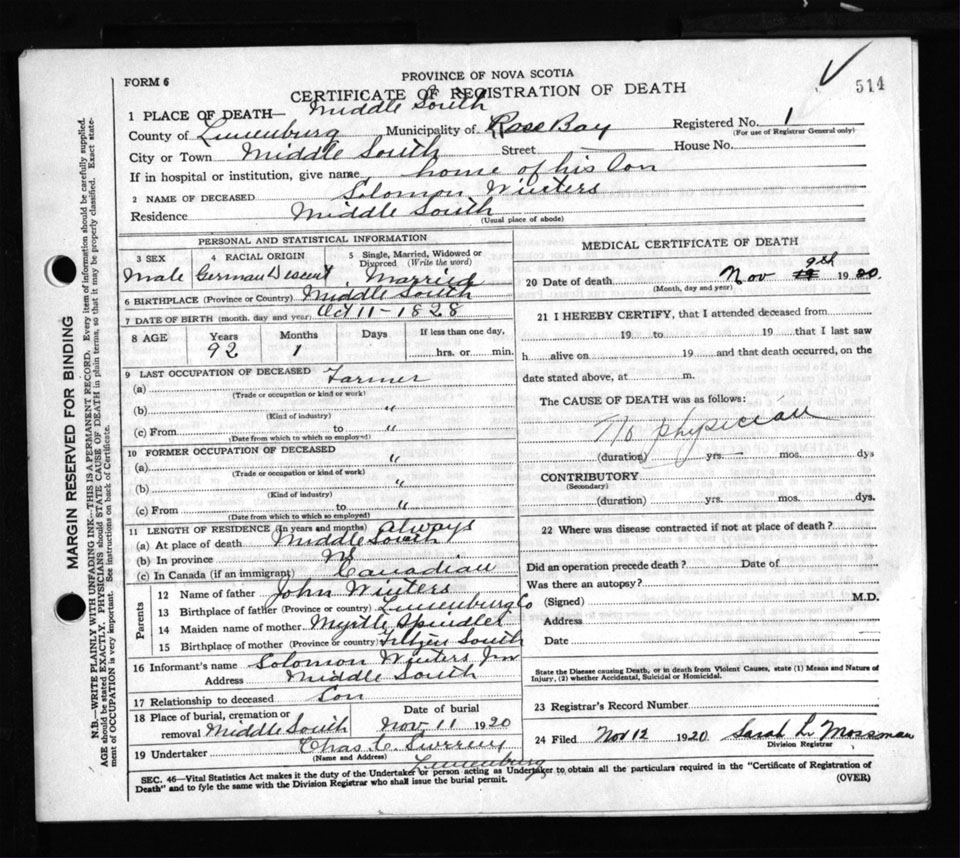 FORM 6
PROVINCE OF NOVA SCOTIA
514
CERTIFICATE OF REGISTRATION OF DEATH
1 PLACE OF DEATH— Middle South
County of Lunenburg Municipality of Rose Bay Registered No. 1
(For use of Registrar General only)
City or Town Middle South Street House No.
If in hospital or institution, give name home of his Son
2 NAME OF DECEASED Solomon Winters
Residence Middle South
(Usual place of abode)
PERSONAL AND STATISTICAL INFORMATION
3 SEX
Male
4 RACIAL ORIGIN
German Descent
5 Single, Married, Widowed or Divorced (Write the word)
Married
6 BIRTHPLACE (Province or Country) Middle South
7 DATE OF BIRTH (month, day and year) Oct 11 - 1828
8 AGE Years Months Days If less than one day,
92 1 hrs. or min.
9 LAST OCCUPATION OF DECEASED Farmer
(a)
(Trade or occupation or kind or work)
(b) "
(Kind of industry)
(c) From to "
(Date from which to which so employed)
10 FORMER OCCUPATION OF DECEASED
(a) "
(Trade or occupation or kind of work)
(b) "
(Kind of industry)
(c) From to "
(Date from which to which so employed)
11 LENGTH OF RESIDENCE (In years and months) always
(a) At place of death Middle South
(b) In province NS
(c) In Canada (if an immigrant) Canadian
Parents
12 Name of father John Winters
13 Birthplace of father (Province or country) Lunenburg Co
14 Maiden name of mother Myrtle Spindler
15 Birthplace of mother (Province or country) South
16 Informant's name Solomon Winters Jnr
Address Middle South
17 Relationship to deceased Son
18 Place of burial, cremation or removal Middle South
Date of burial
Nov 11 1920
19 Undertaker Chas
(Name and Address) Lunenburg
MEDICAL CERTIFICATE OF DEATH
20 Date of death Nov 9th 1920.
(Month, day and year)
21 I HEREBY CERTIFY, that I attended deceased from
19 to 19 that I last saw
h alive on 19 and that death occurred, on the
date stated above, at m.
The CAUSE OF DEATH was as follows:
No physician
(duration) yrs. mos. dys
CONTRIBUTORY
(Secondary)
(duration) yrs. mos. dys.
22 Where was disease contracted if not at place of death?
Did an operation precede death? Date of
Was there an autopsy?
(Signed) M.D.
Address
Date
State the Disease causing Death, or in death from Violent Causes, state (1) Means and Nature of
Injury, (2) whether Accidental, Suicidal or Homicidal.
23 Registrar's Record Number
24 Filed Nov 12 1920 Sarah L. Mossman
Division Registrar
SEC. 46—Vital Statistics Act makes it the duty of the Undertaker or person acting as Undertaker to obtain all the particulars required in the "Certificate of Registration of
Death" and to fyle the same with the Division Registrar who shall issue the burial permit.
(OVER)
MARGIN RESERVED FOR BINDING
N.B.—WRITE PLAINLY WITH UNFADING INK—THIS IS A PERMANENT RECORD. Every item of information should be carefully supplied.
AGE should be stated EXACTLY. PHYSICIANS should STATE CAUSE OF DEATH in plain terms, so that it may be properly classified. Exact state-
ment of OCCUPATION is very important. See instructions on back of Certificate.